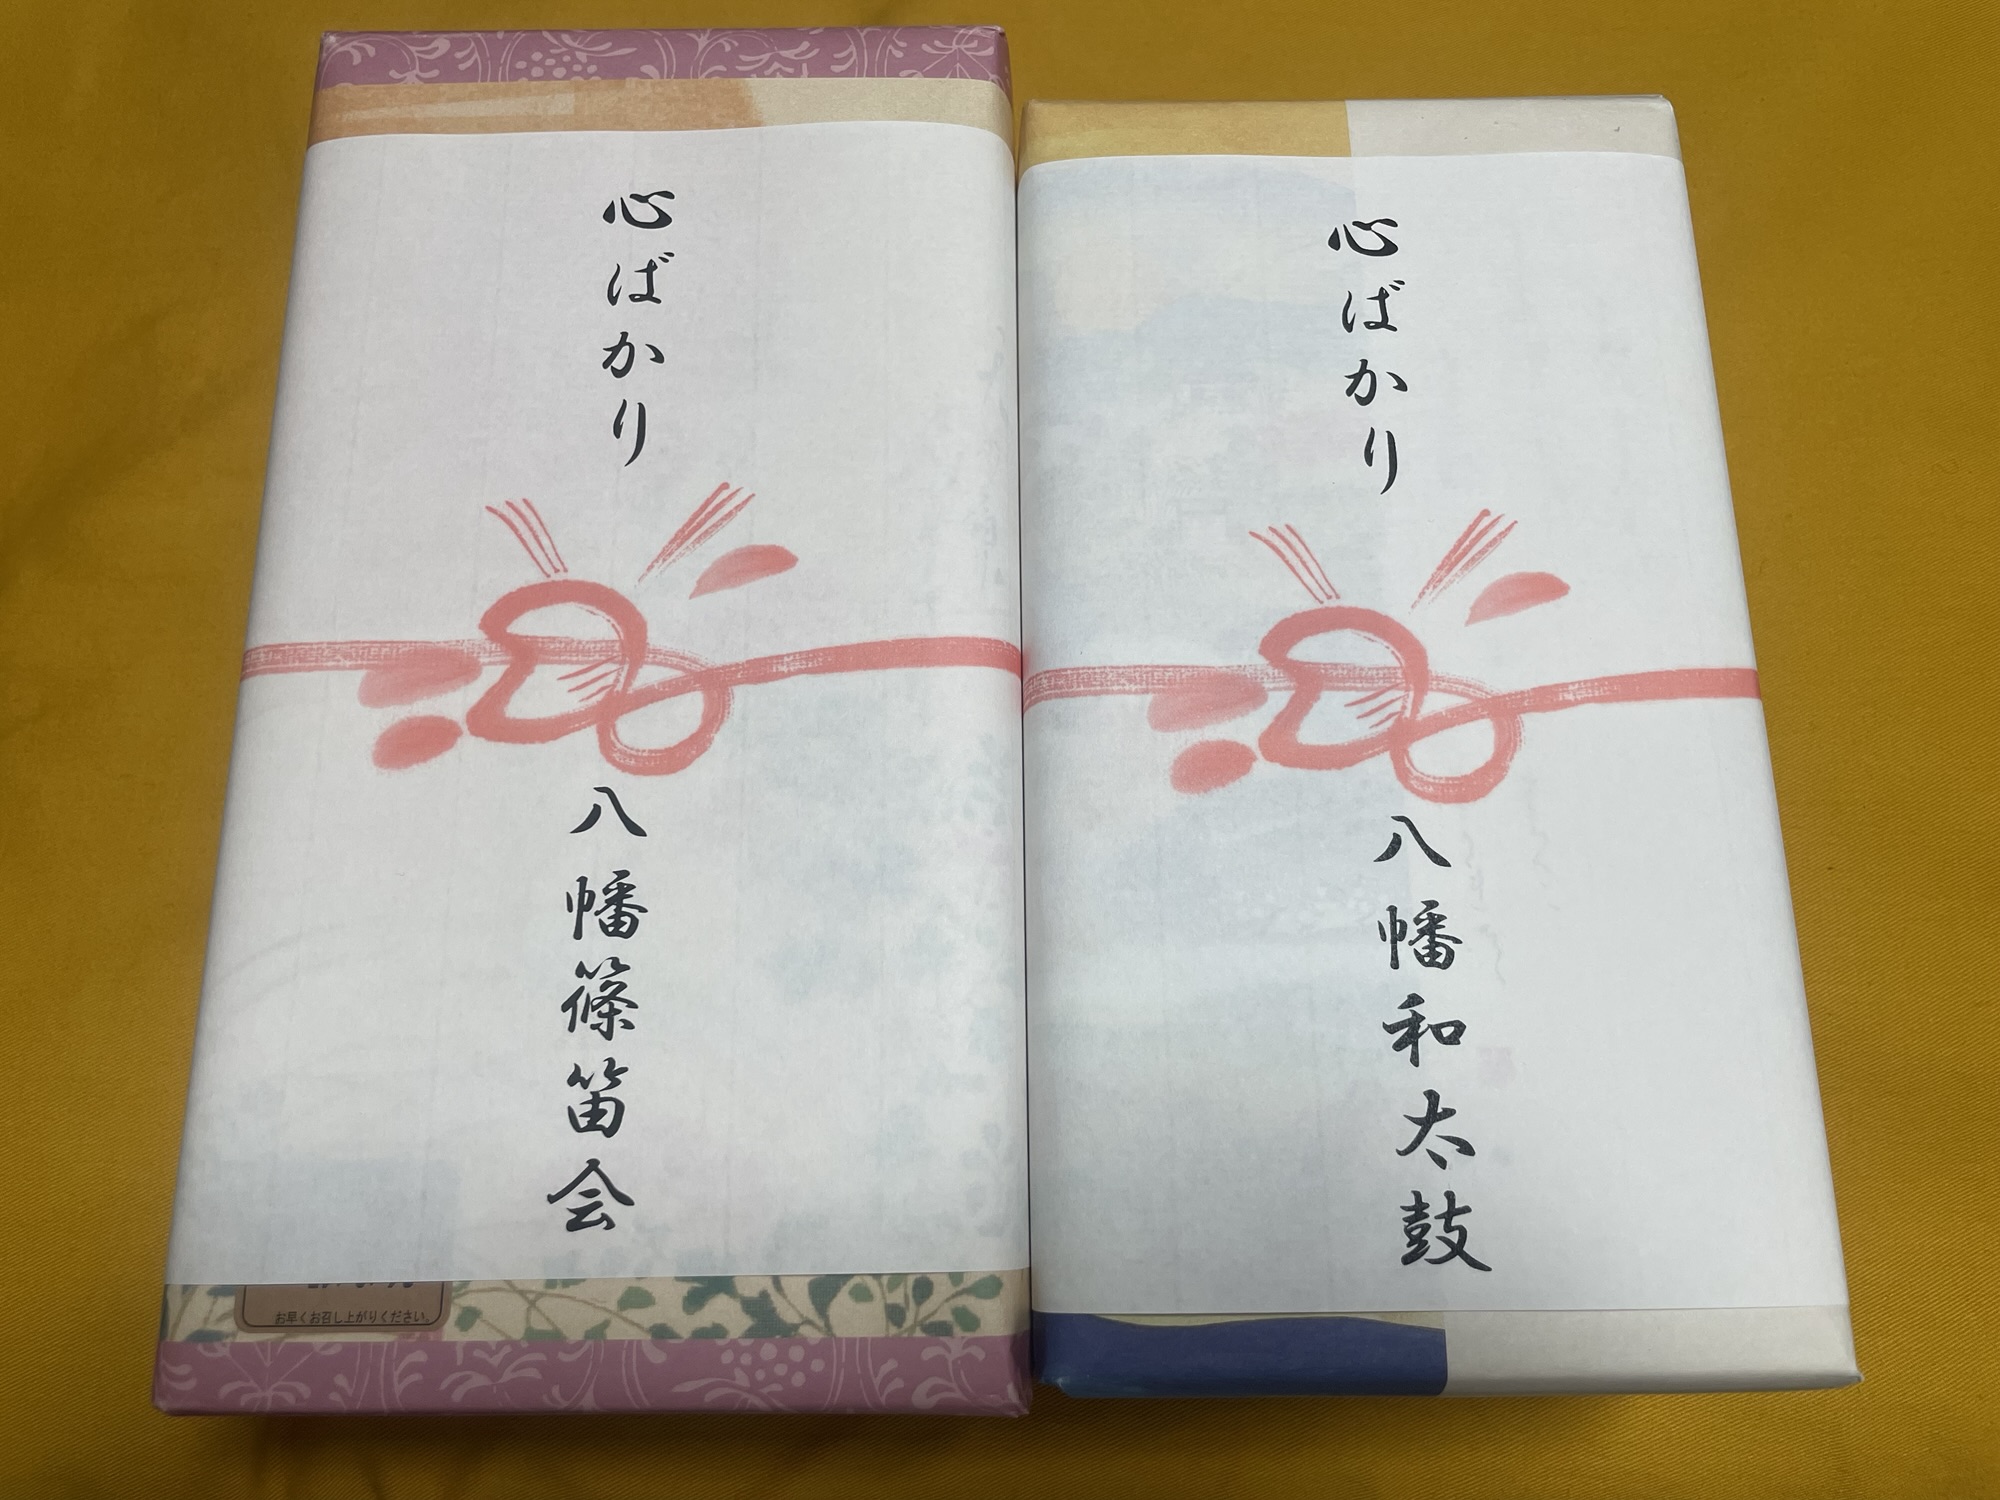 心ばかり
八幡篠笛会
お早くお召し上がりください。
心ばかり
八幡和太鼓